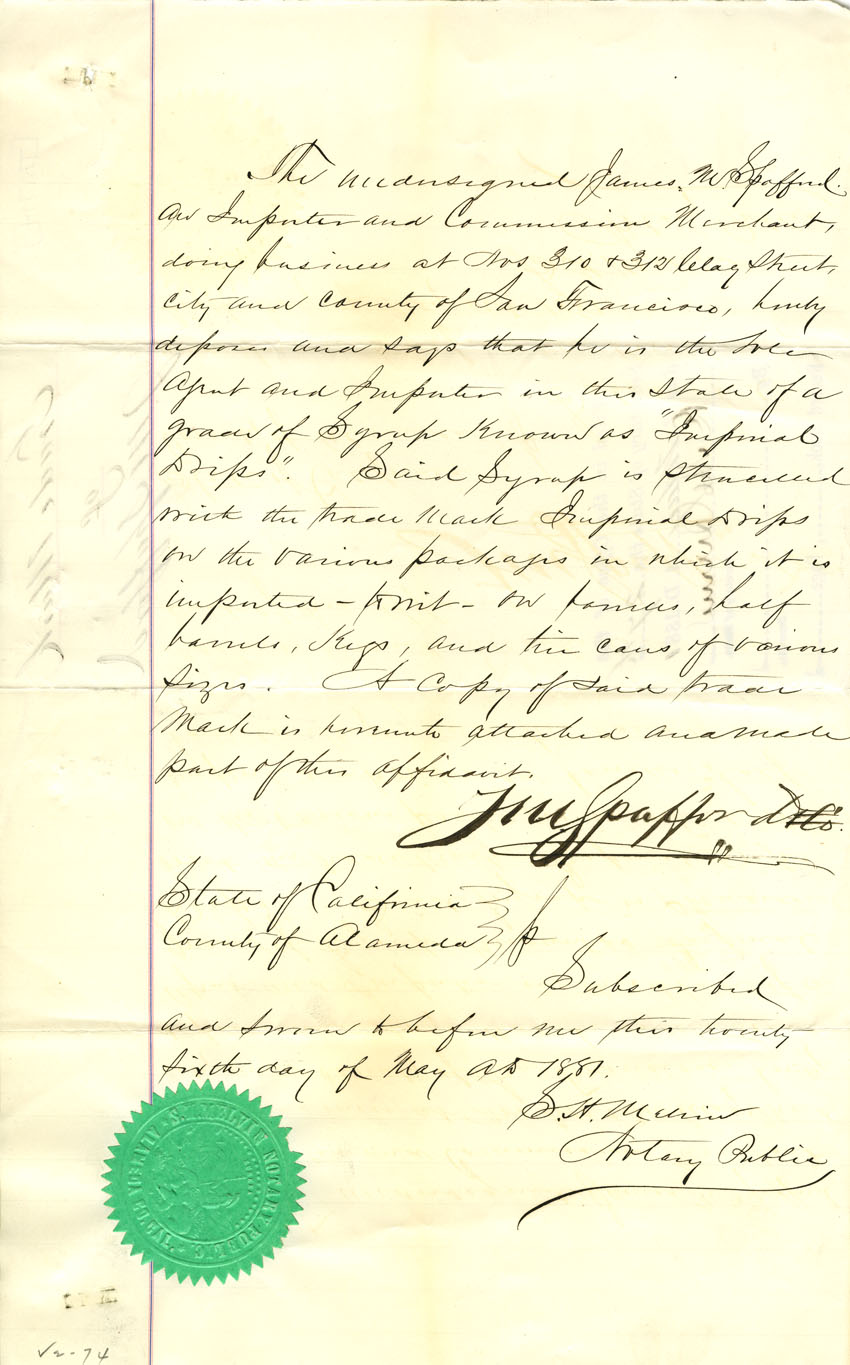 The undersigned James. M. Spafford.
an Importer and Commission Merchant,
doing business at Nos 310 & 312 Clay Street,
city and county of San Francisco, hereby
deposes and says that he is the Sole
Agent and Importer in this State of a
grade of Syrup Known as "Imperial
Drips". Said Syrup is stenciled
with the trade Mark Imperial Drips
on the various packages in which it is
imported - to wit - on barrels, half
barrels, Kegs, and tin cans of various
sizes. A Copy of said trade
Mark is hereunto attached and made
part of this affidavit.
J M Spafford & Co.
State of California
County of Alameda } ss
Subscribed
and sworn to before me this twenty
sixth day of May AD 1881.
S. H. Melvin
Notary Public
S. H. MELVIN NOTARY PUBLIC
ALAMEDA CO. CAL.
V2-74